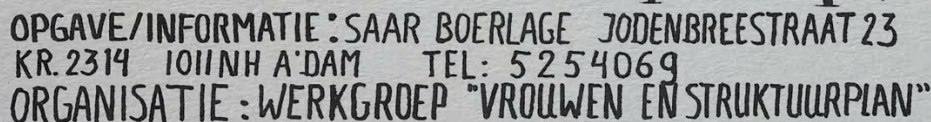 OPGAVE/INFORMATIE: SAAR BOERLAGE JODENBREESTRAAT 23
KR. 2314 1011NH A'DAM TEL: 5254069
ORGANISATIE: WERKGROEP "VROUWEN EN STRUKTUURPLAN"